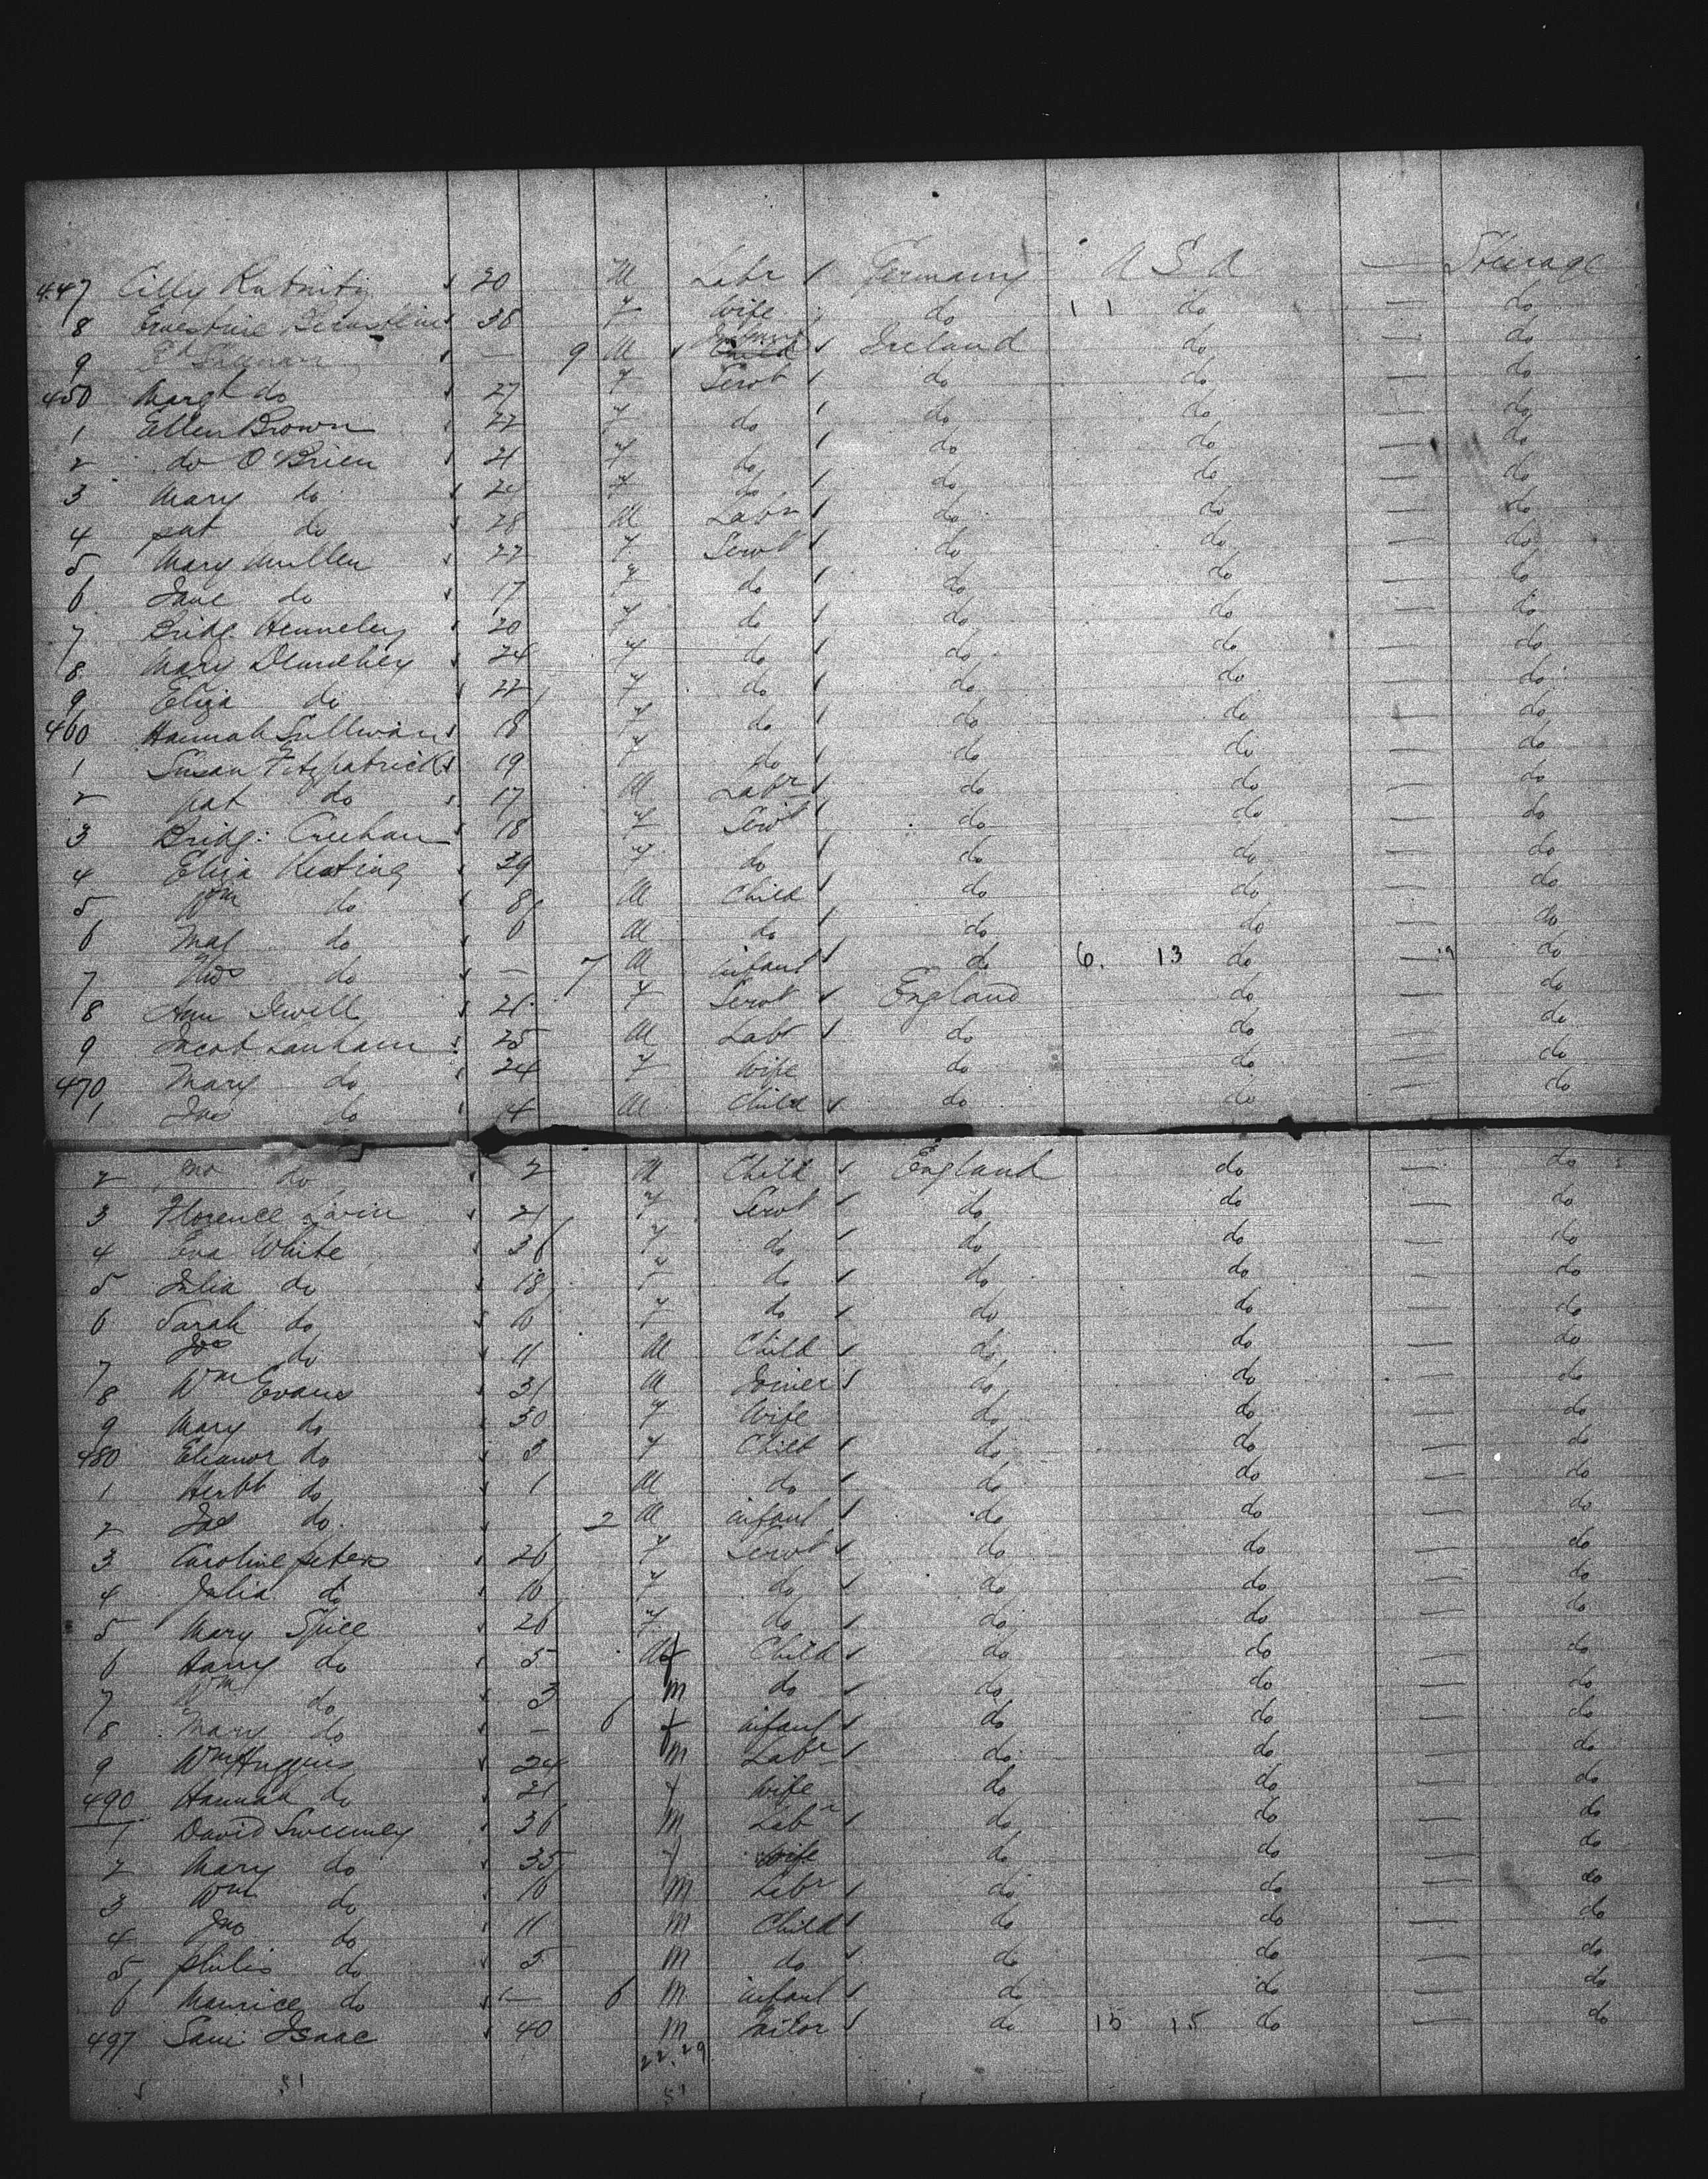 447 Cilly 20 M Labr Germany U S A — Steerage
8 Ernestine Bernstein 38 F Wife do 1 1 do — do
9 9 M Infant Ireland do — do
450 Margt do 27 F Servt do do — do
1 Ellen Brown 22 F do do do — do
2 do O'Brien 21 F do do do — do
3 Mary do 24 F do do do — do
4 pat do 28 M Labr do do — do
5 Mary Mullen 22 F Servt do do — do
6 Jane do 17 F do do do — do
7 Bridg. Henneley 20 F do do do — do
8 Mary 24 F do do do — do
9 Eliza do 22 F do do do — do
460 Hannah Sullivan 18 F do do do — do
1 Susan Fitzpatrick 19 F do do do — do
2 pat do 17 M Labr do do — do
3 Bridg: Creehan 18 F Servt do do — do
4 Eliza Keating 29 F do do do — do
5 Wm do 8 M Child do do — do
6 do 6 M do do do — do
7 Thos do — 7 M infant do 6. 13 do — do
8 Ann 21 F Servt England do — do
9 Jacob Lanham 25 M Labr do do — do
470 Mary do 24 F Wife do do — do
1 Jas do 4 M Child do do — do
2 Jno do 2 M Child England do — do
3 Florence 21 F Servt do do — do
4 Eva White 36 F do do do — do
5 Julia do 18 F do do do — do
6 Sarah do 16 F do do do — do
7 Jos do 11 M Child do do — do
8 Wm Evans 31 M Joiner do do — do
9 Mary do 30 F Wife do do — do
480 Eleanor do 3 F Child do do — do
1 Herbt do 1 M do do do — do
2 Jas do 2 M infant do do — do
3 Caroline peters 26 F Servt do do — do
4 Julia do 16 F do do do — do
5 Mary Spice 26 F do do do — do
6 Harry do 5 f Child do do — do
7 Wm do 3 m do do do — do
8 Mary do — 6 f infant do do — do
9 Wm Huggins 24 m Labr do do — do
490 Hannah do 21 f Wife do do — do
1 David Sweeney 36 m Labr do do — do
2 Mary do 35 f Wife do do — do
3 Wm do 16 m Labr do do — do
4 Jno do 11 m Child do do — do
5 philip do 5 m do do do — do
6 Maurice do — 6 m infant do do — do
497 Saml Isaac 40 m Tailor do 15 15 do do
22.29
51 51